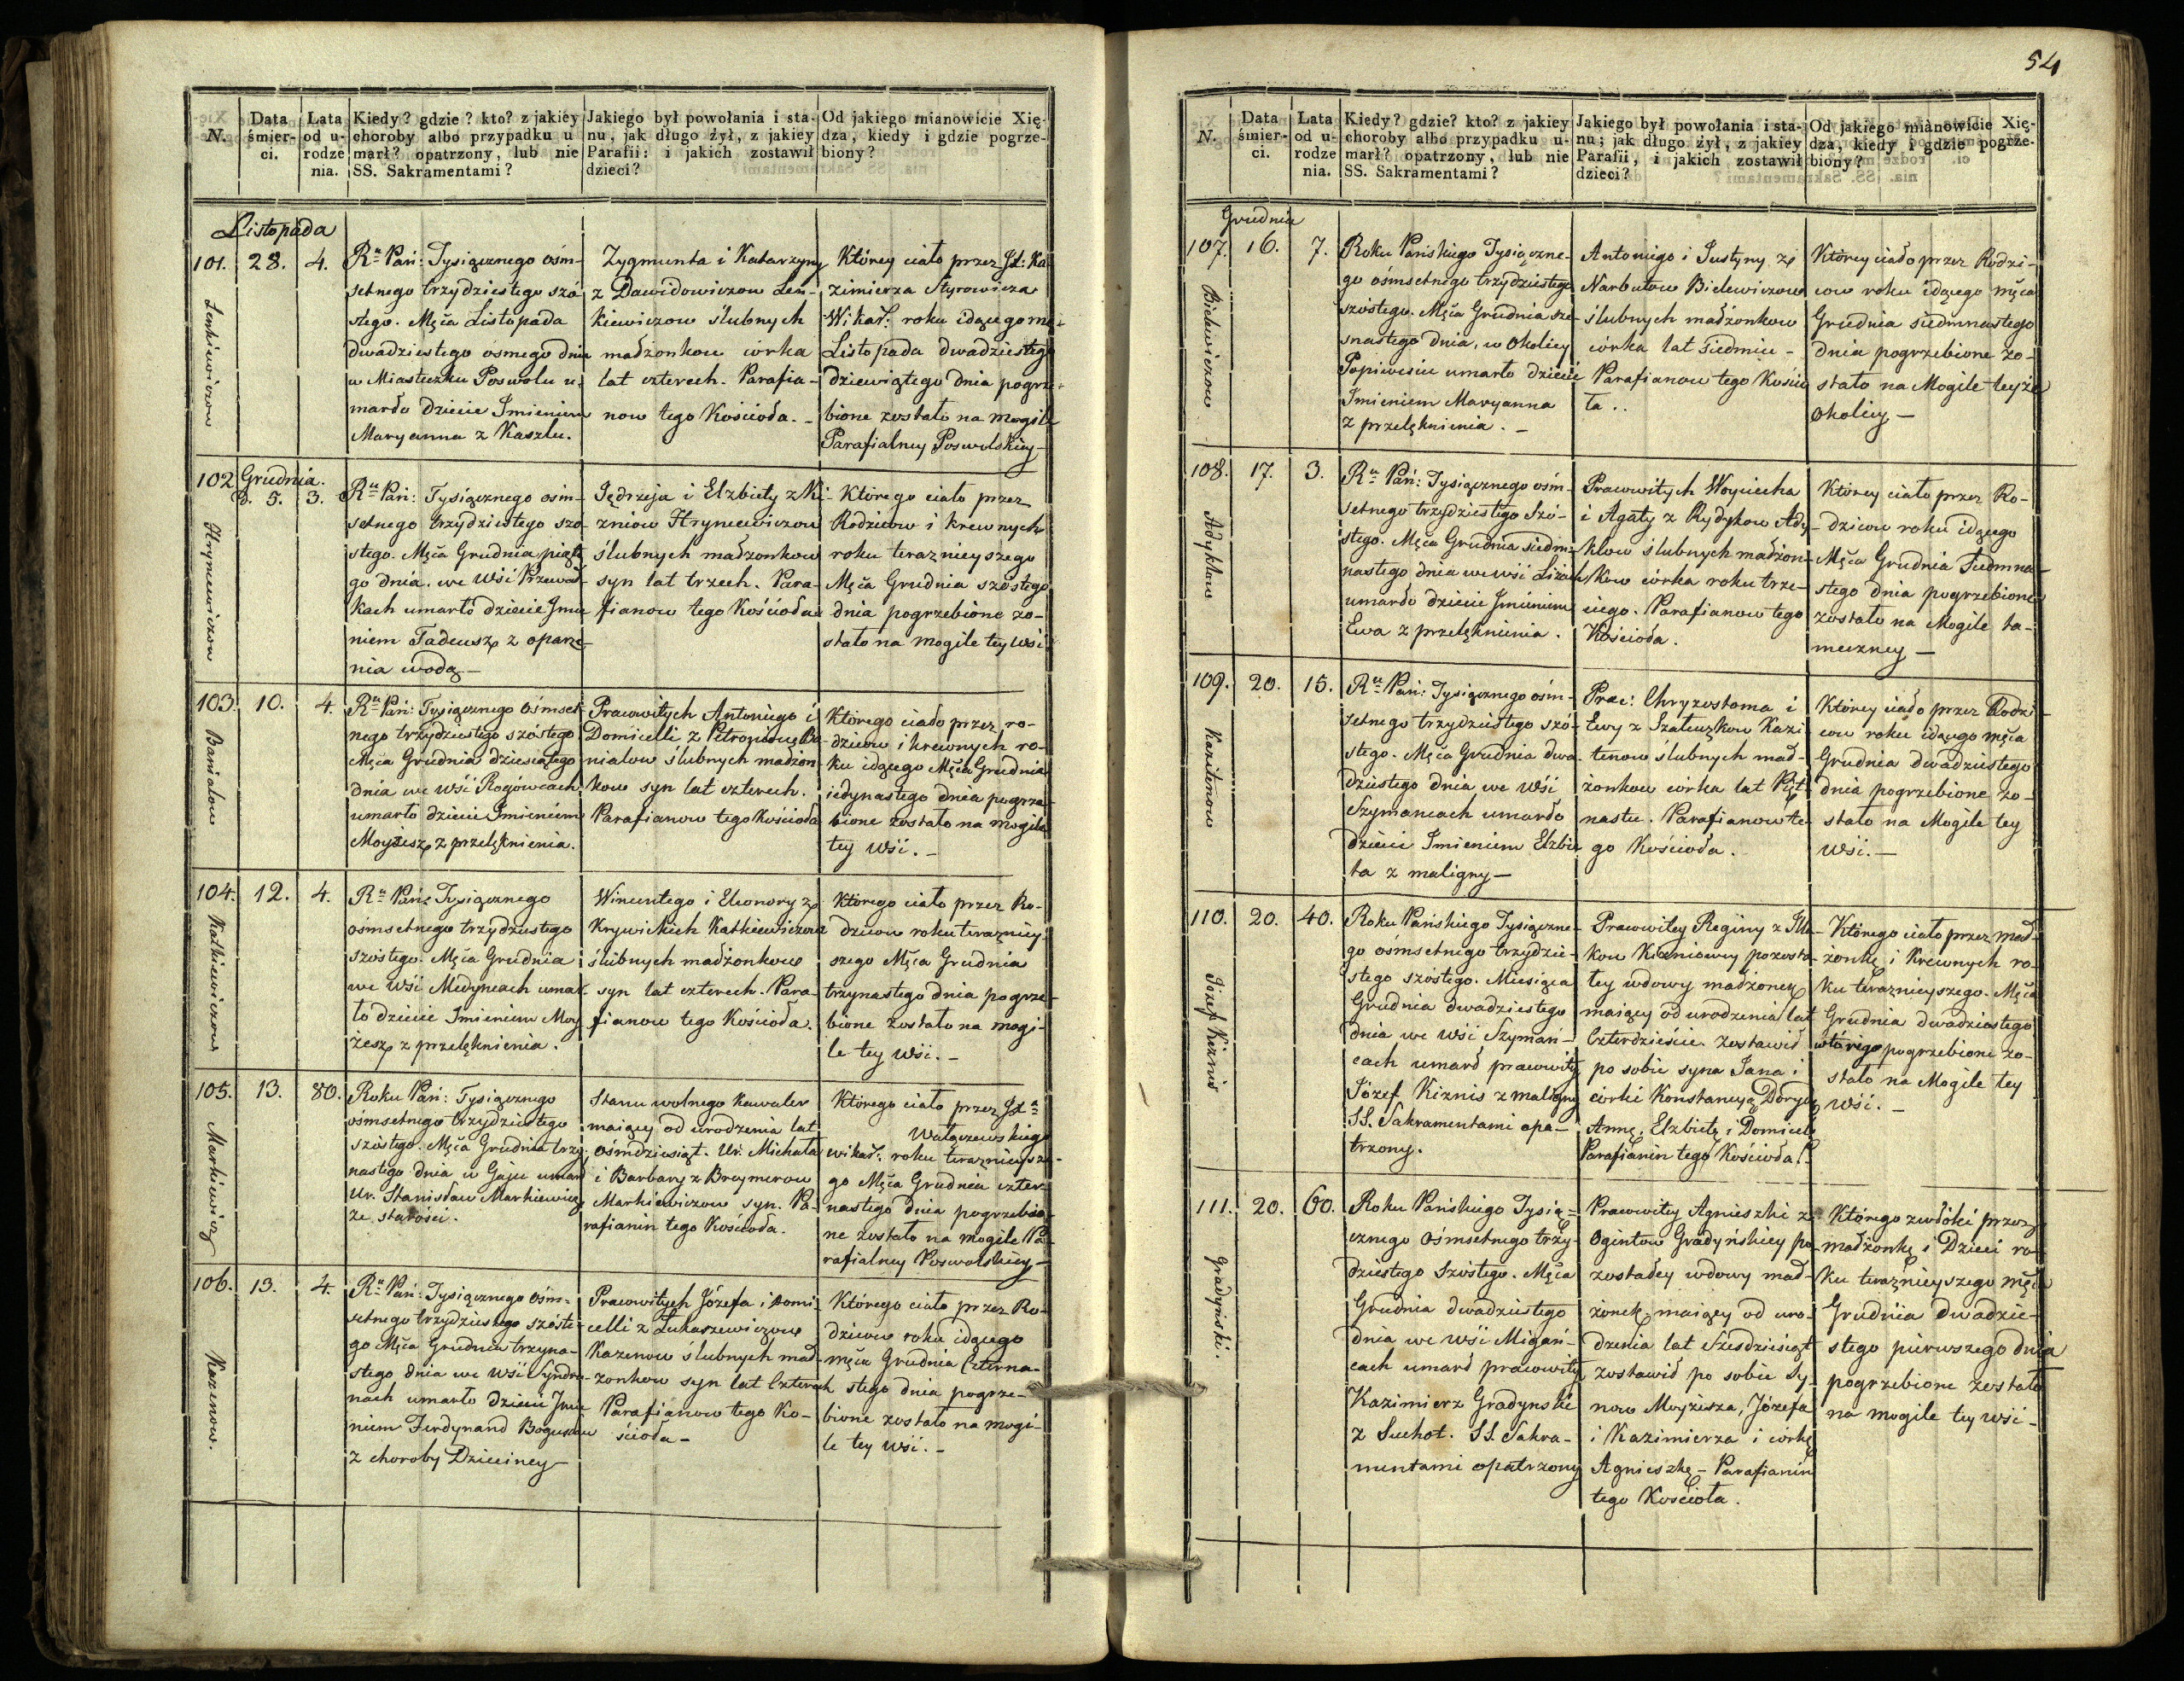 54
N.
Data śmierci.
Lata od urodzenia.
Kiedy? gdzie? kto? z jakiey
choroby albo przypadku u-
marł? opatrzony, lub nie
SS. Sakramentami?
Jakiego był powołania i sta-
nu, jak długo żył, z jakiey
Parafii: i jakich zostawił
dzieci?
Od jakiego mianowicie Xię-
dza, kiedy i gdzie pogrze-
biony?
Listopada
101. 28. 4.
Lenkiewiczow
Ru Pań: Tysiącznego ośm-
setnego trzydziestego szó-
stego. Mca Listopada
dwadziestego osmego dnia
w Miasteczku Poswolu u-
marło dziecie Imieniem
Maryanna z Kaszlu.
Zygmunta i Katarzyny
z Dawidowiczow Len-
kiewiczow ślubnych
małżonkow córka
lat czterech. Parafia-
now tego Kościoła. -
Którey ciało przez Jd: Ka-
zimierza Styrowicza
Wikar: roku idącego mca
Listopada dwadziestego
dziewiątego dnia pogrze-
bione zostało na mogile
Parafialney Poswolskiey -
Grudnia.
102. D. 5. 3.
Hryncewiczow
Ru Pań: Tysiącznego ośm-
setnego trzydziestego szó-
stego. Mca Grudnia piąte-
go dnia. we Wsi
kach umarło dziecie Imie
niem Tadeusz z oparze-
nia wodą -
Jędrzeja i Elzbiety z Ki-
zniow Hryncewiczow
ślubnych małżonkow
syn lat trzech. Para-
fianow tego Kościoła
Którego ciało przez
Rodzicow i krewnych
roku teraznieyszego
Mca Grudnia szóstego
dnia pogrzebione zo-
stało na mogile tey wsi
103. 10. 4.
Banialow
Ru Pań: Tysiącznego Ośmset-
nego trzydziestego szóstego
Mca Grudnia dziesiątego
dnia we Wsi Rogowcach
umarło dziecie Imieniem
Moyżesz z przelęknienia.
Pracowitych Antoniego i
Domicelli z Ba-
nialow ślubnych małżon
kow syn lat czterech.
Parafianow tego Kościoła
Którego ciało przez ro-
dzicow i krewnych ro-
ku idącego Mca Grudnia
iedynastego dnia pogrze-
bione zostało na mogile
tey wsi. -
104. 12. 4.
Katkiewiczow
Ru Pań: Tysiącznego
ośmsetnego trzydziestego
szóstego. Mca Grudnia
we Wsi Medyncach umar-
ło dziecie Imieniem Moy
żesz z przelęknienia.
Wincentego i Eleonory z
Krywickich Katkiewiczow
ślubnych małżonkow
syn lat czterech. Para-
fianow tego Kościoła.
Którego ciało przez Ro-
dzicow roku teraźniey-
szego Mca Grudnia
trzynastego dnia pogrze-
bione zostało na mogi-
le tey wsi. -
105. 13. 80.
Markiewicz
Roku Pań: Tysiącznego
ośmsetnego trzydziestego
szóstego. Mca Grudnia trzy-
nastego dnia w Gaju umarł
Ur. Stanisław Markiewicz
ze starości.
Stanu wolnego kawaler
maiący od urodzenia lat
ośmdziesiąt. Ur. Michała
i Barbary z Breymerow
Markiewiczow syn. Pa-
rafianin tego Kościoła.
Którego ciało przez Jd:
Wałgzewskiego
wikar: roku teraznieysze-
go Mca Grudnia czter-
nastego dnia pogrzebio-
ne zostało na mogile Pa-
rafialney Poswolskiey -
106. 13. 4.
Kazenow.
Ru Pań: Tysiącznego ośm-
setnego trzydziestego szóste-
go Mca Grudnia trzyna-
stego dnia we Wsi Syndra-
nach umarło dziecie Imie
niem Ferdynand Bogusław
z choroby Dziecinney -
Pracowitych Józefa i Domi-
celli z Łukaszewiczow
Kazenow ślubnych mał-
żonkow syn lat Czterech
Parafianow tego Ko-
ścioła -
Którego ciało przez Ro-
dzicow roku idącego
męca Grudnia Czterna-
stego dnia pogrze-
bione zostało na mogi-
le tey wsi. -
N.
Data śmierci.
Lata od urodzenia.
Kiedy? gdzie? kto? z jakiey
choroby albo przypadku u-
marł? opatrzony, lub nie
SS. Sakramentami?
Jakiego był powołania i sta-
nu; jak długo żył, z jakiey
Parafii, i jakich zostawił
dzieci?
Od jakiego mianowicie Xię-
dza, kiedy i gdzie pogrze-
biony?
Grudnia
107. 16. 7.
Bielewiczow
Roku Pańskiego Tysiączne-
go ośmsetnego trzydziestego
szóstego. Mca Grudnia sze-
snastego dnia, w Okolicy
Popiwesiu umarło dziecie
Imieniem Maryanna
z przelęknienia. -
Antoniego i Justyny z
Narbutow Bielewiczow
ślubnych małżonkow
córka lat siedmiu -
Parafianow tego Kościo
ła..
Którey ciało przez Rodzi-
cow roku idącego męca
Grudnia siedmnastego
dnia pogrzebione zo-
stało na Mogile teyże
Okolicy -
108. 17. 3.
Adykłow
Ru Pań: Tysiącznego ośm-
setnego trzydziestego Szó-
stego. Mca Grudnia siedm-
nastego dnia we wsi
umarło dziecie Imieniem
Ewa z przelęknienia.
Pracowitych Woyciecha
i Agaty z Rydykow Ady-
kłow ślubnych małżon-
kow córka roku trze-
ciego. Parafianow tego
Kościoła.
Którey ciało przez Ro-
dzicow roku idącego
Mca Grudnia Siedmna-
stego dnia pogrzebione
zostało na Mogile ta-
meczney -
109. 20. 15.
Kazitenow
Ru Pań: Tysiącznego ośm-
setnego trzydziestego szó-
stego. Mca Grudnia dwa-
dziestego dnia we Wsi
Szymancach umarło
dziecie Imieniem Elzbie
ta z maligny -
Prac: Chryzostoma i
Ewy z Szateuszkow Kazi
tenow ślubnych mał-
żonkow córka lat Pięt-
nastu. Parafianow te-
go Kościoła.
Którey ciało przez Rodzi-
cow roku idącego męca
Grudnia dwadziestego
dnia pogrzebione zo-
stało na Mogile tey
wsi. -
110. 20. 40.
Józef Kiznis
Roku Pańskiego Tysiączne-
go ośmsetnego trzydzie-
stego szóstego. Miesiąca
Grudnia dwadziestego
dnia we wsi Szyman-
cach umarł pracowity
Józef Kiznis z maligny
SS. Sakramentami opa-
trzony.
Pracowitey Reginy z
kow Kizniowey pozosta-
łey wdowy małżonek
maiący od urodzenia lat
Czterdzieście. Zostawił
po sobie syna Jana i
córki Konstancyą Dorotę
Annę, Elzbietę i Domicelę
Parafianin tego Kościoła. -
Którego ciało przez mał-
żonkę i Krewnych ro-
ku teraznieyszego. Mca
Grudnia dwadziestego
wtórego pogrzebione zo-
stało na Mogile tey
wsi. -
111. 20. 60.
Gradyński.
Roku Pańskiego Tysią-
cznego Ośmsetnego trzy-
dziestego Szóstego. Mca
Grudnia dwadziestego
dnia we wsi Migań-
cach umarł pracowity
Kazimierz Gradynski
z Suchot. SS. Sakra-
mentami opatrzony
Pracowitey Agnieszki z
Ogintow Gradyńskiey po-
zostałey wdowy mał-
żonek maiący od uro-
dzenia lat Sześdziesiąt
zostawił po sobie Sy-
now Moyżesza, Józefa
i Kazimierza i córkę
Agnieszkę - Parafianin
tego Kościoła.
Którego zwłoki przez
małżonkę i Dzieci ro-
ku teraznieyszego męca
Grudnia dwadzie-
stego pierwszego dnia
pogrzebione zostało
na mogile tey wsi -